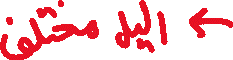 ← الميل مختلف